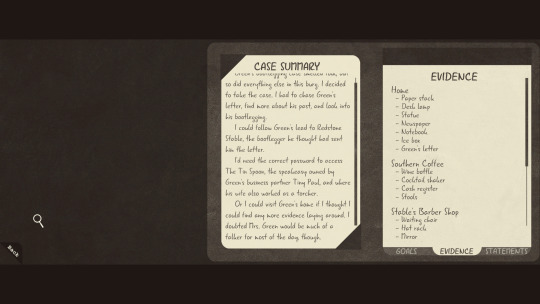 CASE SUMMARY
Green's bootlegging case smelled foul, but
so did everything else in this burg. I decided
to take the case. I had to chase Green's
letter, find more about his past, and look into
his bootlegging.
I could follow Green's lead to Redstone
Stable, the bootlegger he thought had sent
him the letter.
I'd need the correct password to access
The Tin Spoon, the speakeasy owned by
Green's business partner Tiny Paul, and where
his wife also worked as a torcher.
Or I could visit Green's home if I thought I
could find any more evidence laying around. I
doubted Mrs. Green would be much of a
talker for most of the day though.
EVIDENCE
Home
- Paper stack
- Desk lamp
- Statue
- Newspaper
- Notebook
- Ice box
- Green's letter
Southern Coffee
- Wine bottle
- Cocktail shaker
- Cash register
- Stools
Stable's Barber Shop
- Waiting chair
- Hat rack
- Mirror
GOALS EVIDENCE STATEMENTS
Back